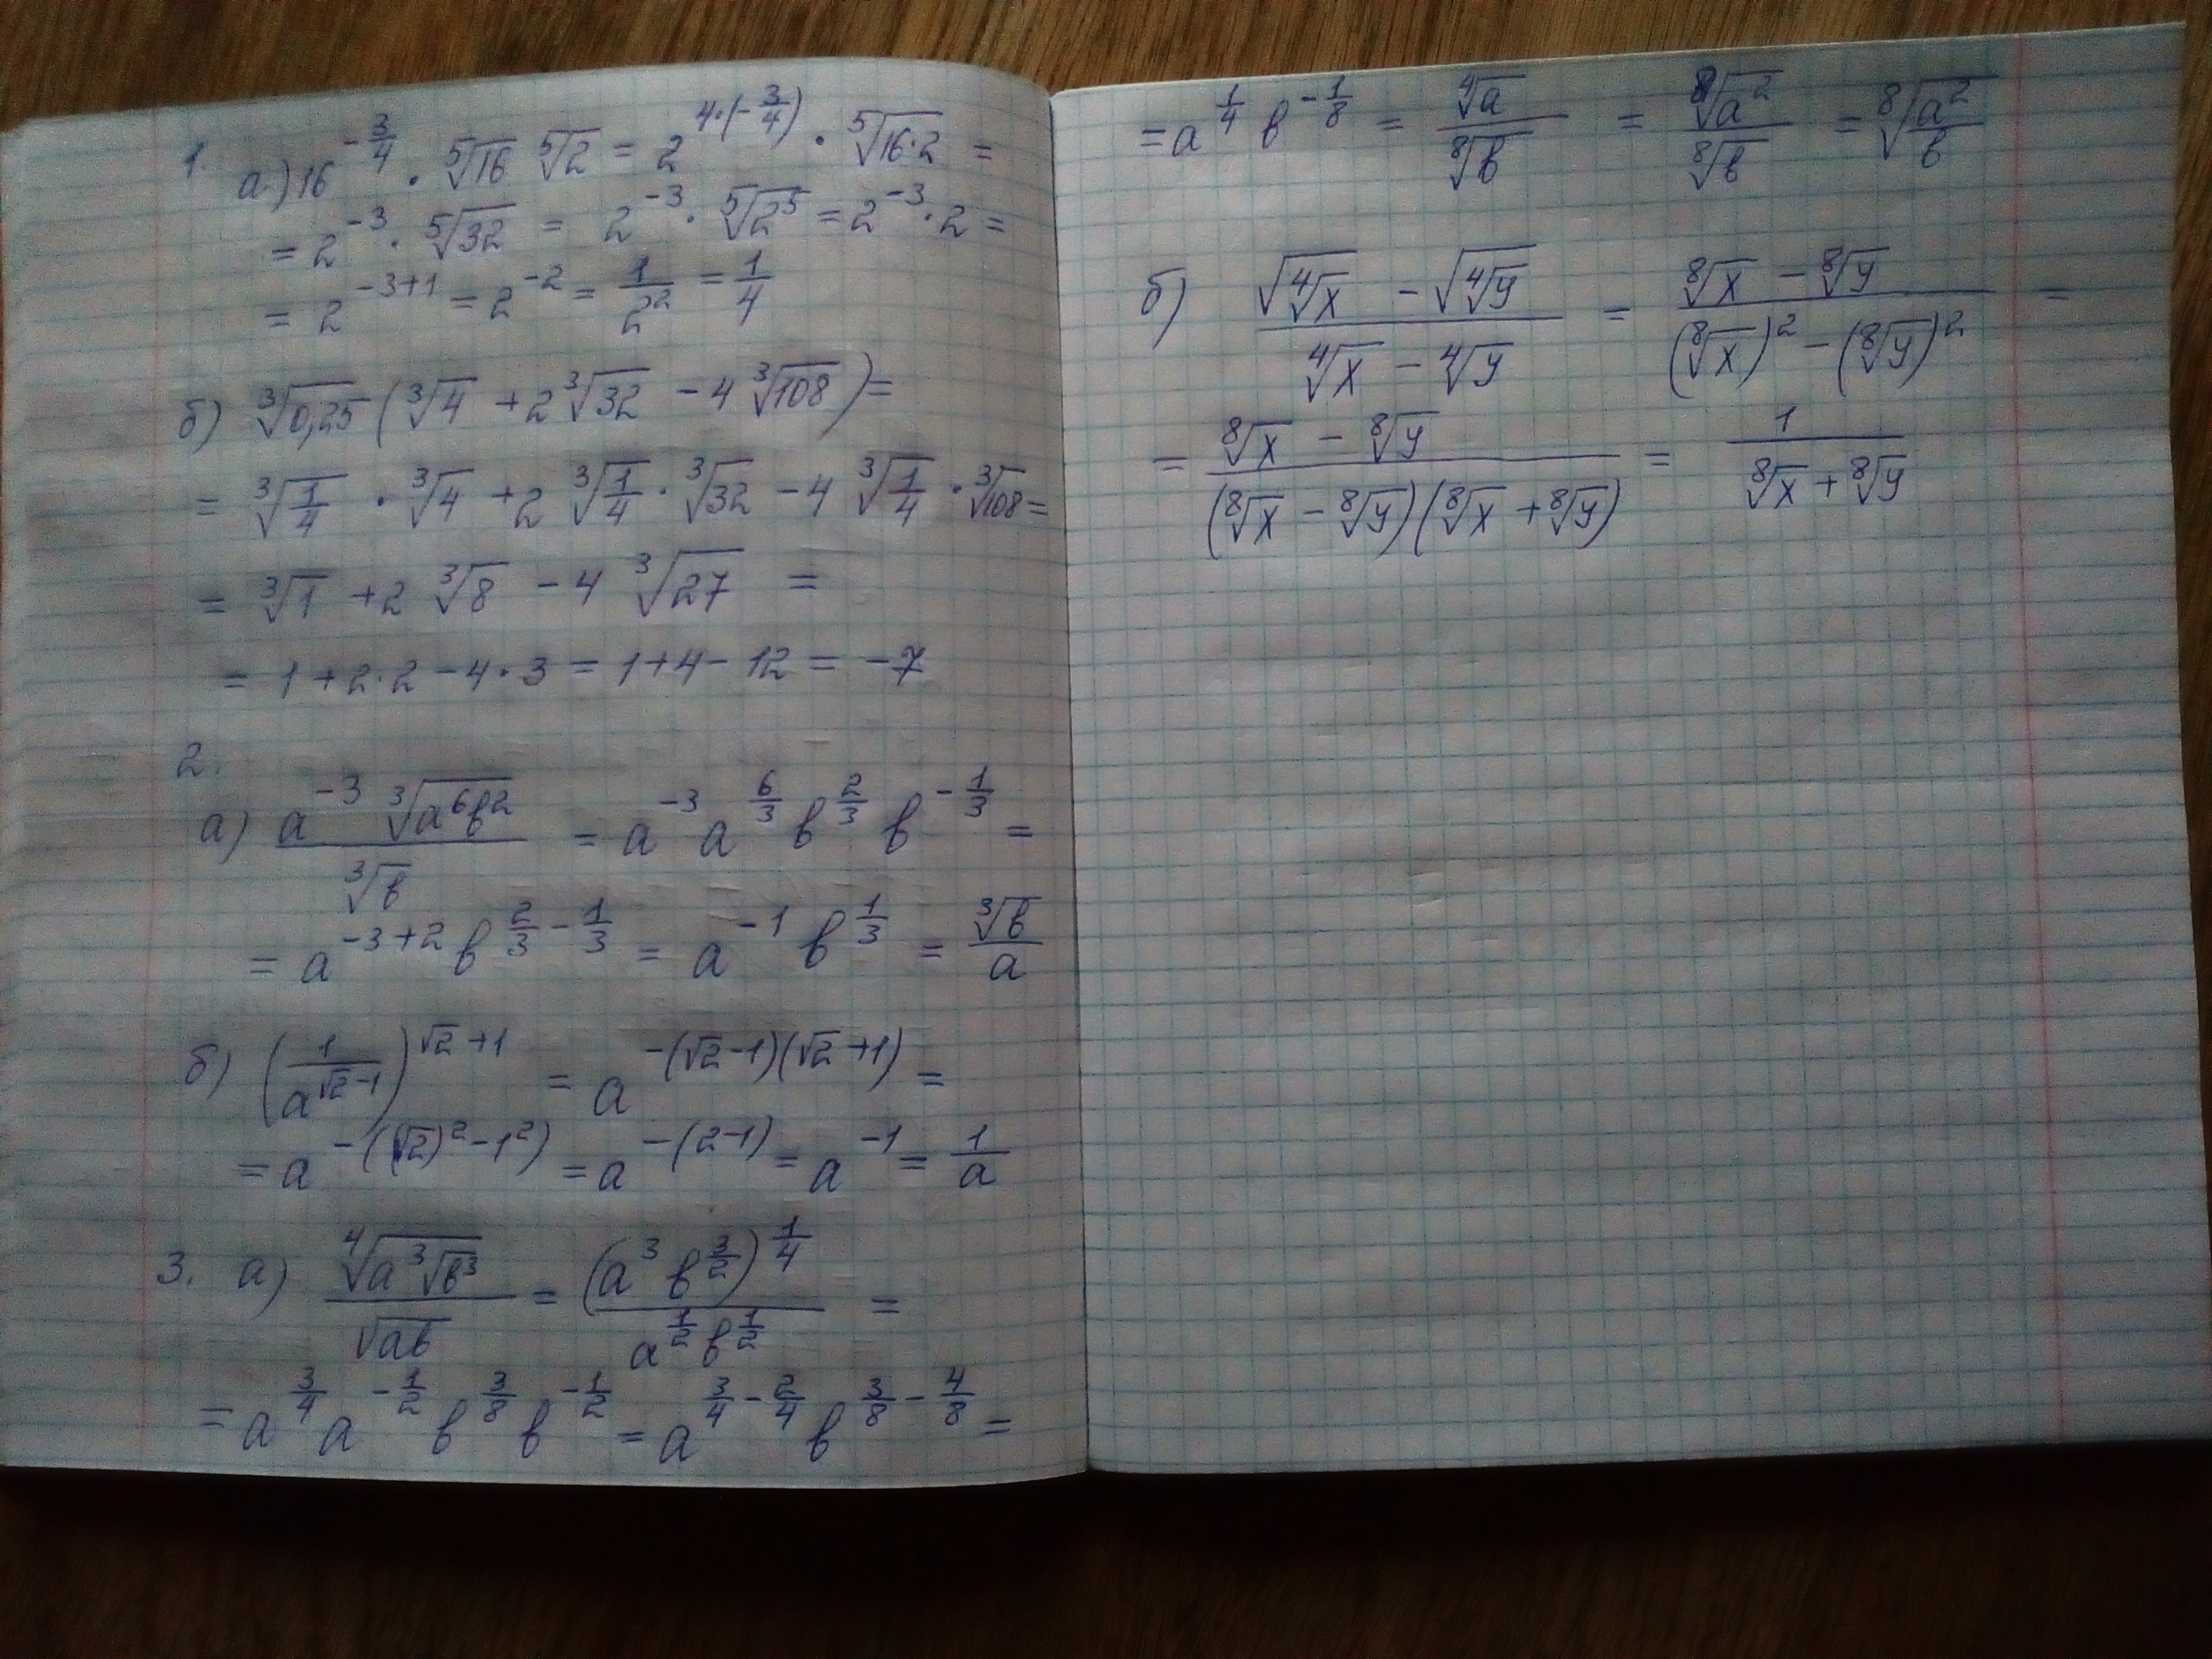 1. а.) 16^{-3/4} · ⁵√16 ⁵√2 = 2^{4·(-3/4)} · ⁵√(16·2) =
= 2^{-3} · ⁵√32 = 2^{-3} · ⁵√(2⁵) = 2^{-3} · 2 =
= 2^{-3+1} = 2^{-2} = 1/2² = 1/4
б) ³√0,25 (³√4 + 2 ³√32 - 4 ³√108) =
= ³√(1/4) · ³√4 + 2 ³√(1/4) · ³√32 - 4 ³√(1/4) · ³√108 =
= ³√1 + 2 ³√8 - 4 ³√27 =
= 1 + 2·2 - 4·3 = 1 + 4 - 12 = -7
2.
а) (a^{-3} ³√(a⁶b²))/(³√b) = a^{-3} a^{6/3} b^{2/3} b^{-1/3} =
= a^{-3+2} b^{2/3-1/3} = a^{-1} b^{1/3} = ³√b/a
б) (1/a^{√2-1})^{√2+1} = a^{-(√2-1)(√2+1)} =
= a^{-((√2)²-1²)} = a^{-(2-1)} = a^{-1} = 1/a
3. а) ⁴√(a³√(b³))/√(ab) = (a³ b^{3/2})^{1/4}/(a^{1/2} b^{1/2}) =
= a^{3/4} a^{-1/2} b^{3/8} b^{-1/2} = a^{3/4-2/4} b^{3/8-4/8} =
= a^{1/4} b^{-1/8} = ⁴√a/⁸√b = ⁸√(a²)/⁸√b = ⁸√(a²/b)
б) (√(⁴√x) - √(⁴√y))/(⁴√x - ⁴√y) = (⁸√x - ⁸√y)/((⁸√x)² - (⁸√y)²) =
= (⁸√x - ⁸√y)/((⁸√x - ⁸√y)(⁸√x + ⁸√y)) = 1/(⁸√x + ⁸√y)